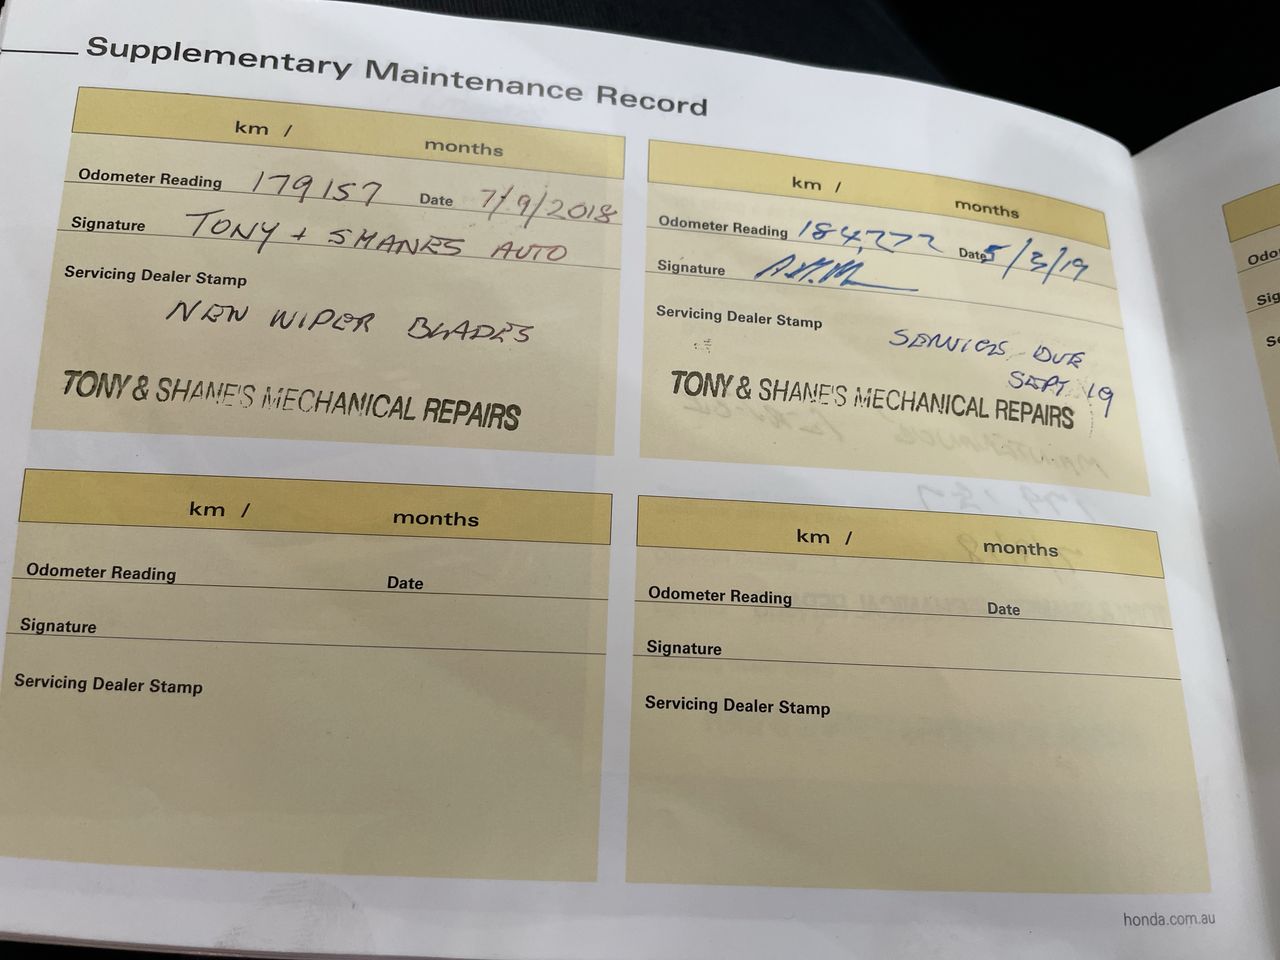 Supplementary Maintenance Record
km / months
Odometer Reading 179157 Date 7/9/2018
Signature TONY + SHANES AUTO
Servicing Dealer Stamp
NEW WIPER BLADES
TONY & SHANE'S MECHANICAL REPAIRS
km / months
Odometer Reading 184,777 Date 5/3/19
Signature
Servicing Dealer Stamp
SERVICES DUE
SEPT 19
TONY & SHANE'S MECHANICAL REPAIRS
km / months
Odometer Reading Date
Signature
Servicing Dealer Stamp
km / months
Odometer Reading Date
Signature
Servicing Dealer Stamp
honda.com.au